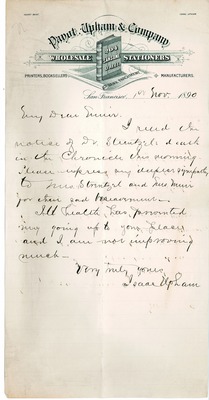 Payot, Upham & Company
WHOLESALE STATIONERS
PRINTERS, BOOKSELLERS
MANUFACTURERS.
San Francisco, 1st Nov. 1890
My Dear Muir
I read the
notice of Dr. Strentzel's death
in the Chronicle this morning
Please express my deepest sympathy
to Mrs Strentzel and Mrs Muir
for their sad bereavement.
Ill health has prevented
my going up to your place
and I am not improving
much—
Very truly yours,
Isaac Upham